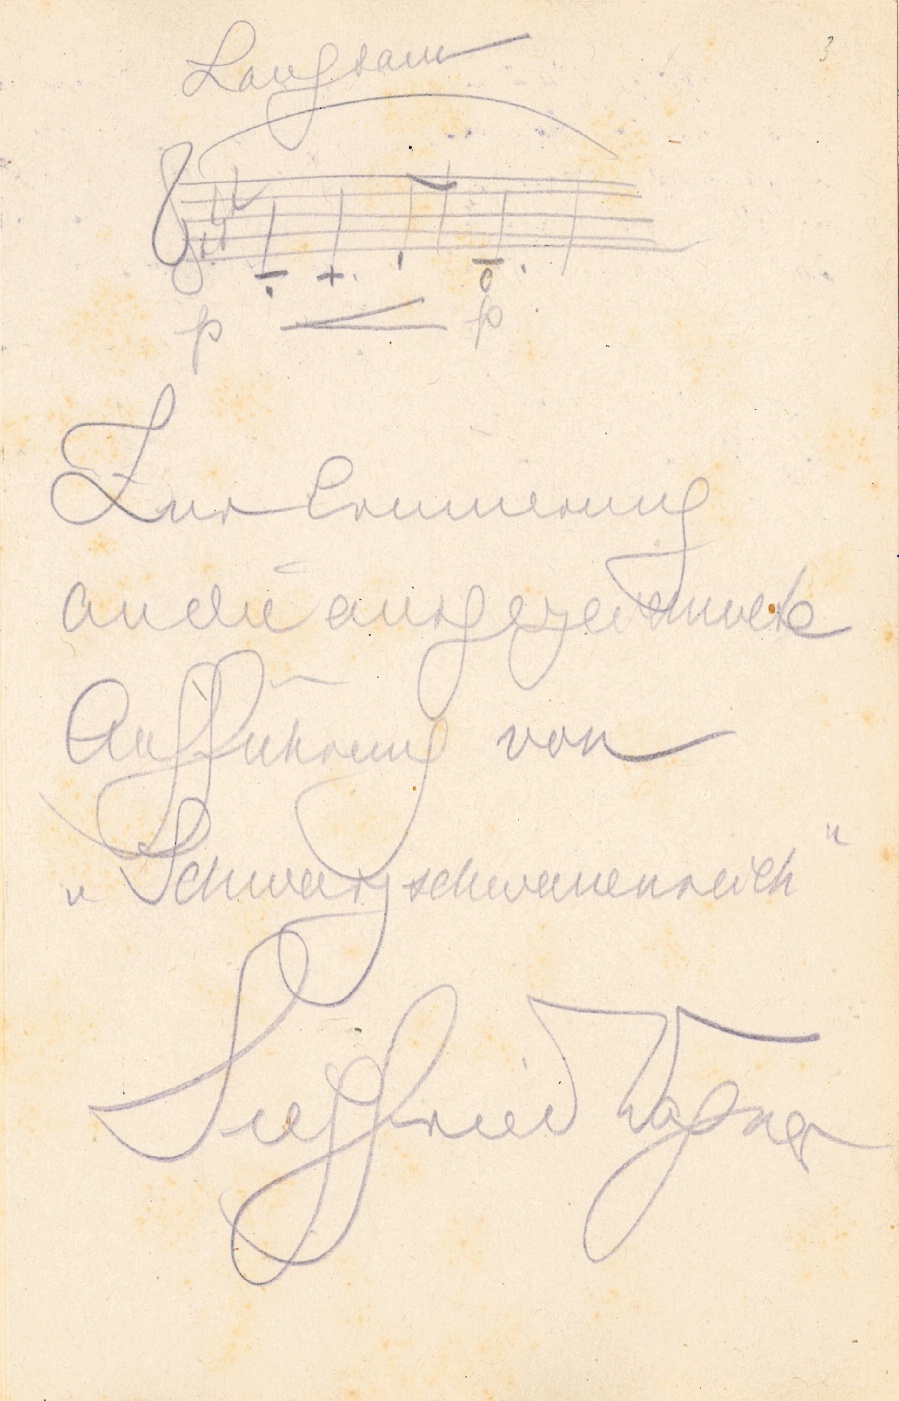 3
Langsam
p p
Zur Erinnerung
an die ausgezeichnete
Aufführung von
„Schwarzschwanenreich"
Siegfried Wagner